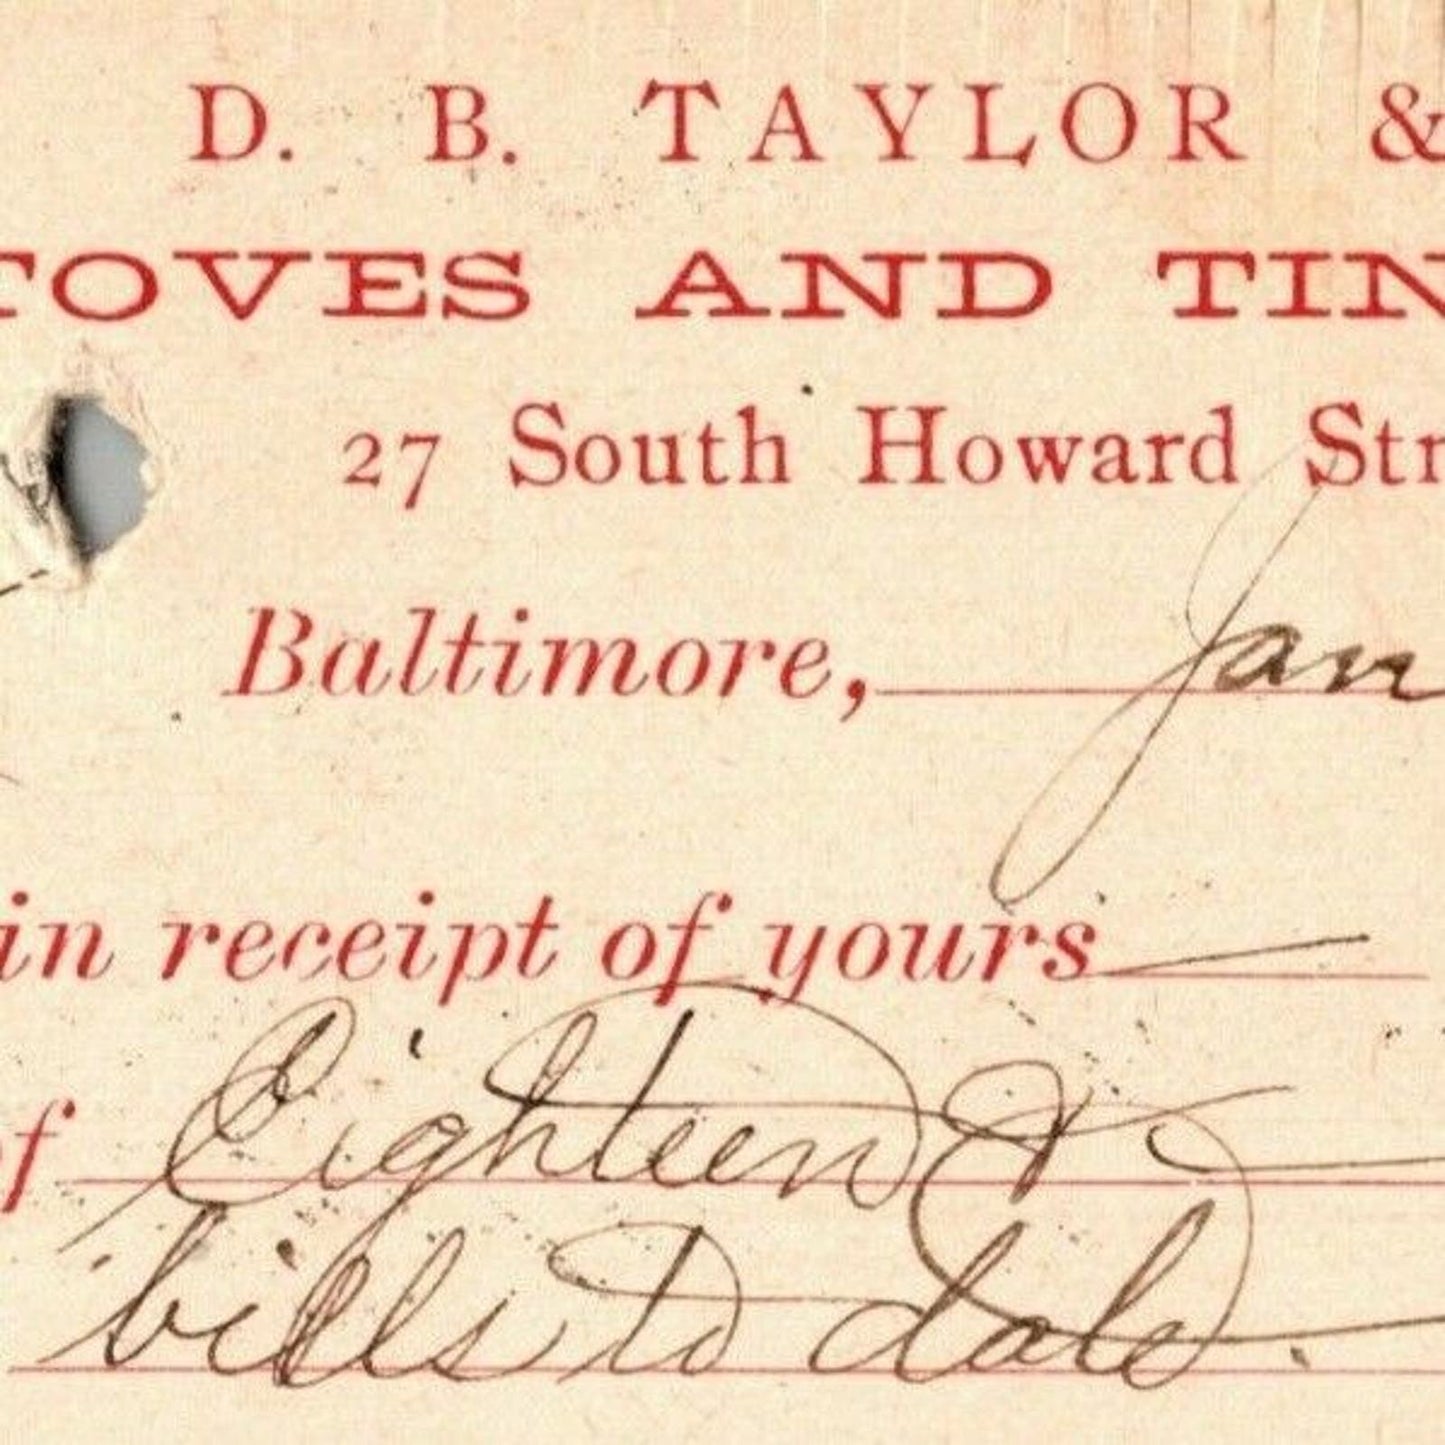 D. B. TAYLOR &
TOVES AND TIN
27 South Howard Str
Baltimore, Jan
in receipt of yours
of Eighteen &
bills to date.